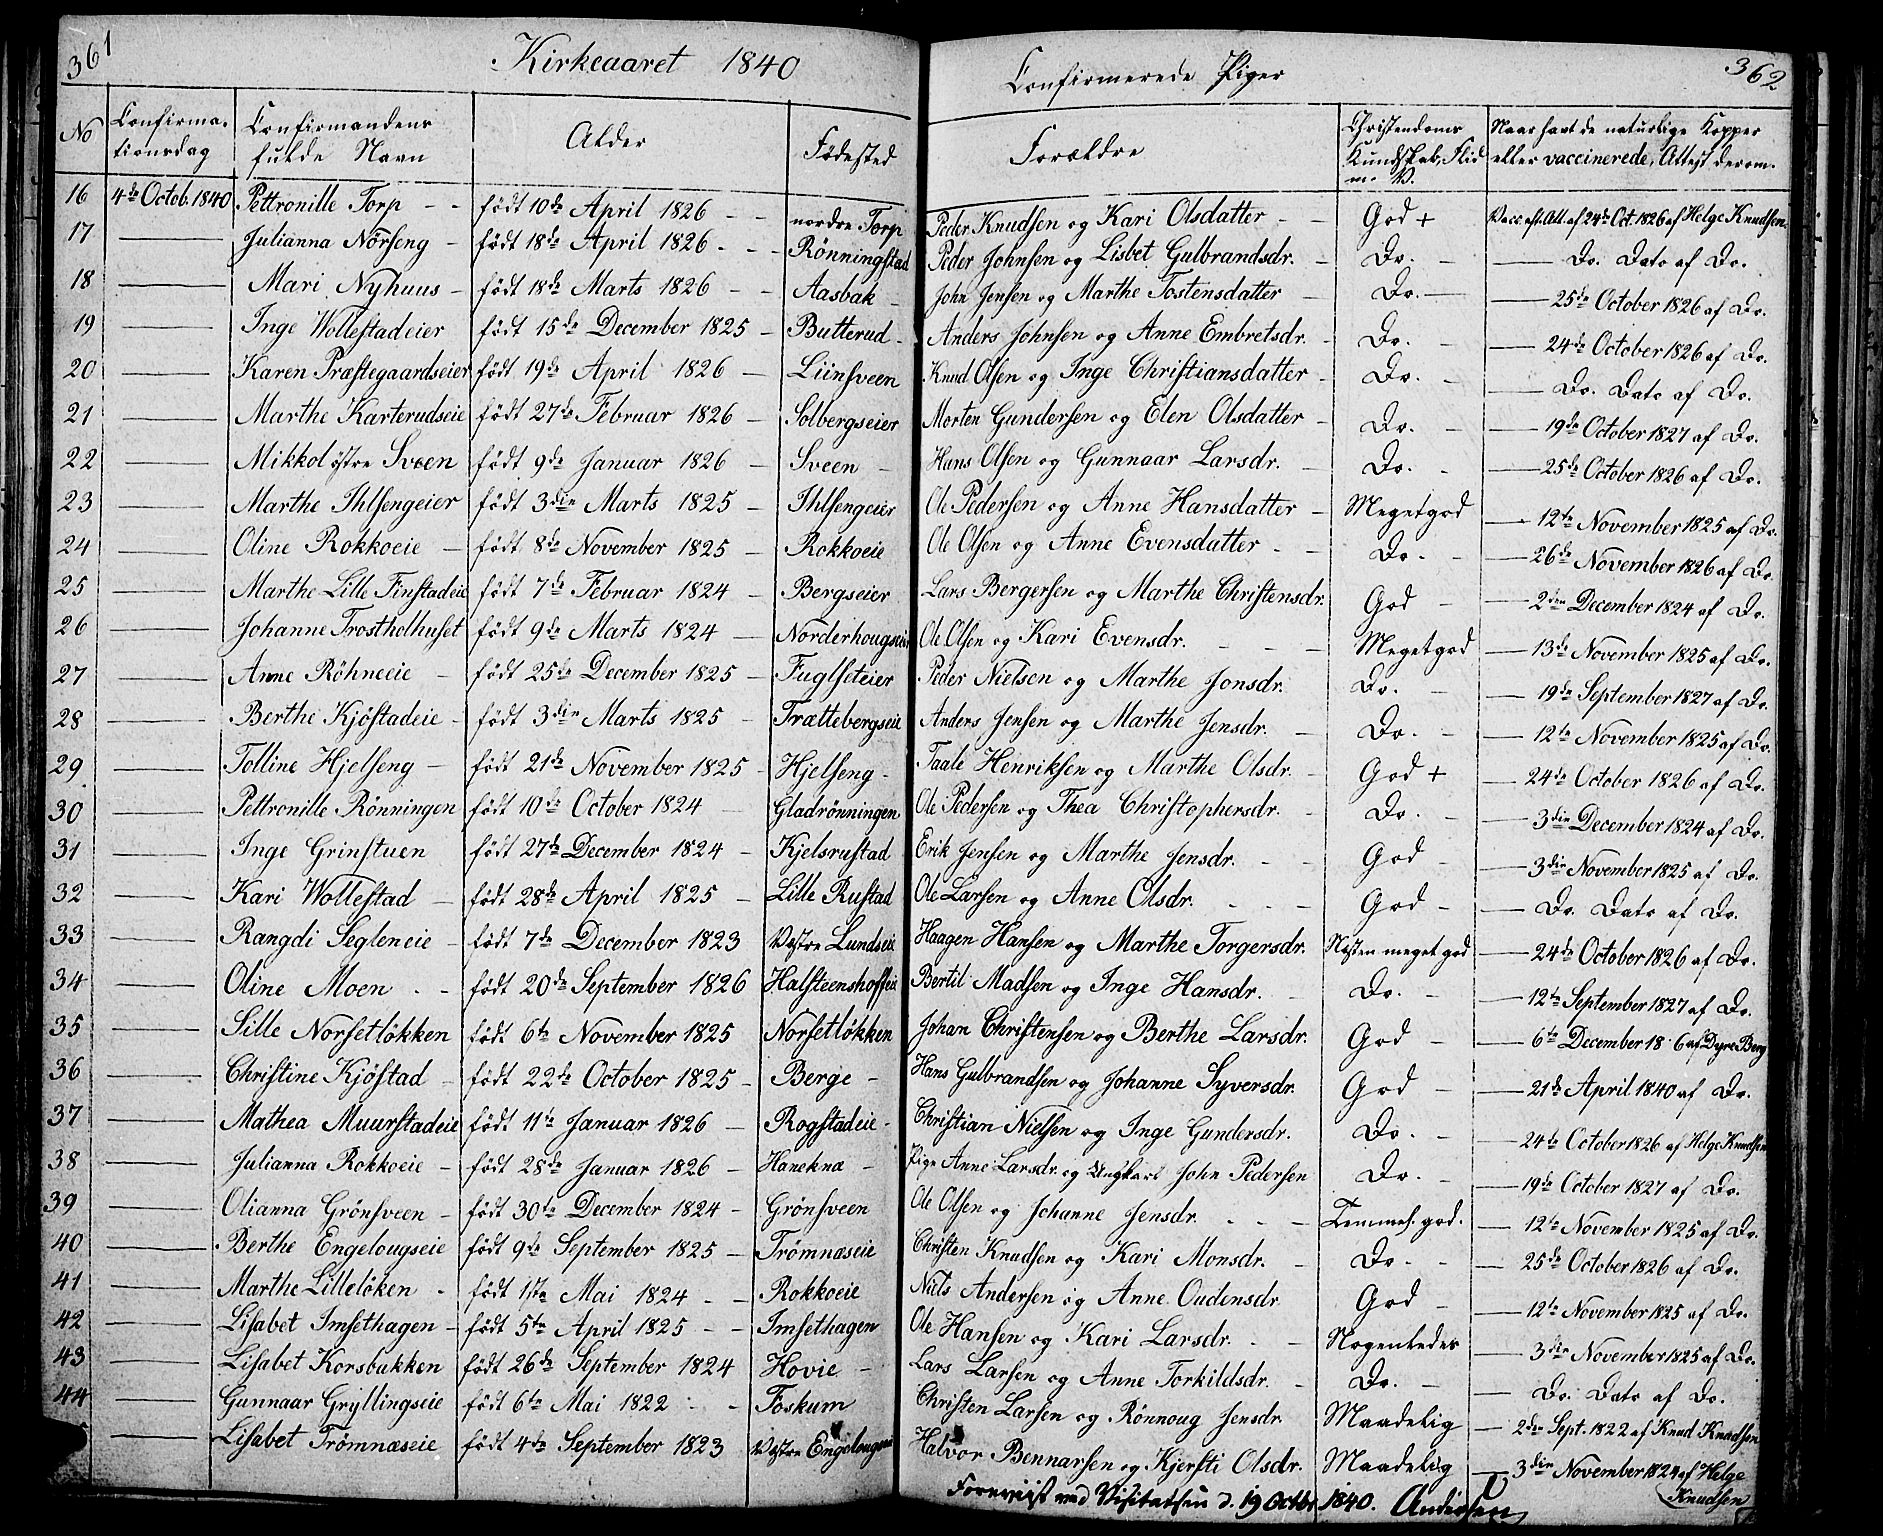 361
Kirkeaaret 1840
Confirmerede Piger
362
No | Confirmationsdag | Confirmandens fulde Navn | Alder | Fødested | Forældre | Christendoms Kundskab, Flid m. V. | Naar havt de naturlige Kopper eller vaccinerede, Attest derom.
16 | 4de Octob. 1840 | Pettronille Torp - - | født 10de April 1826 - - | nordre Torp | Peder Knudsen og Kari Olsdatter - - | God + | Vacc. eft. Att. af 24de Oct. 1826 af Helge Knudsen
17 | — | Julianna Nörseng - | født 18de April 1826 - - - | Rönningstad | Peder Johnsen og Lisbet Gulbrandsdr. - | Do. - | — Do. Dato af Do.
18 | — | Mari Nyhuus - | født 18de Marts 1826 - - | Aasbak - | John Jensen og Marthe Tostensdatter - | Do. — | — 25de October 1826 af Do.
19 | — | Inge Wollestadeier | født 15de December 1825 - | Butterud - | Anders Johnsen og Anne Embretsdr. - | Do. - | — 24de October 1826 af Do.
20 | — | Karen Præstegaardseier | født 19de April 1826 — | Liinsveen | Knud Olsen og Inge Christiansdatter - | Do. - | — Do. Dato af Do.
21 | — | Marthe Karterudseie | født 27de Februar 1826 - | Solbergseier | Morten Gundersen og Elen Olsdatter - | Do. - | — 19de October 1827 af Do.
22 | — | Mikkol östre Sveen | født 9de Januar 1826 - | Sveen - | Hans Olsen og Gunnaar Larsdr. - | Do. - | — 25de October 1826 af Do.
23 | — | Marthe Ihlsengeier | født 3die Marts 1825 - | Ihlsengeier | Ole Pedersen og Anne Hansdatter - | Megetgod | — 12te November 1825 af Do.
24 | — | Oline Rokkoeie — | født 8de November 1825 - | Rokkoeie | Ole Olsen og Anne Evensdatter - - | Do. - | — 26de November 1826 af Do.
25 | — | Marthe Lille Finstadeie | født 7de Februar 1824 - | Bergseier | Lars Bergersen og Marthe Christensdr. | God - | — 2den December 1824 af Do.
26 | — | Johanne Trostholhuset | født 9de Marts 1824 — | Norderhougseie | Ole Olsen og Kari Evensdr. - - - | Megetgod | — 13de November 1825 af Do.
27 | — | Anne Röhneeie - | født 25de December 1825 - | Fuglseteier | Peder Nielsen og Marthe Jonsdr. | Do. - | — 19de September 1827 af Do.
28 | — | Berthe Kjöstadeie - | født 3die Marts 1825 - | Trættebergseie | Anders Jensen og Marthe Jensdr. - | Do. - | — 12te November 1825 af Do.
29 | — | Tolline Hjelseng - | født 21de November 1825 - | Hjelseng - | Taale Henriksen og Marthe Olsdr. - | God + | — 24de October 1826 af Do.
30 | — | Pettronille Rönningen | født 10de October 1824 — | Gladrönningen | Ole Pedersen og Thea Christophersdr. - | Do. - | — 3die December 1824 af Do.
31 | — | Inge Grinstuen | født 27de December 1824 - | Kjelsrustad | Erik Jensen og Marthe Jensdr. - - | God - | — 3die November 1825 af Do.
32 | — | Kari Wollestad - | født 28de April 1825 - | Lille Rustad | Ole Larsen og Anne Olsdr. - - - | God - | — Do. Dato af Do.
33 | — | Rangdi Segleneie - | født 7de December 1823 | Vestre Lundseie | Haagen Hansen og Marthe Torgersdr. | Næsten meget god | — 24de October 1826 af Do.
34 | — | Oline Moen - - | født 20de September 1826 | Halsteenshoffeie | Bertil Madsen og Inge Hansdr. - | Do. - | — 12te September 1827 af Do.
35 | — | Sille Norsetlökken | født 6te November 1825 | Norsetlökken | Johan Christensen og Berthe Larsdr. | God - | — 6te December 18 6 af Dyre Berg
36 | — | Christine Kjöstad - | født 22de October 1825 - | Berge - | Hans Gulbrandsen og Johanne Syversdr. | God - | — 21de April 1840 af Do.
37 | — | Mathea Muurstadeie | født 11te Januar 1826 — | Rogstadeie - | Christian Nielsen og Inge Gundersdr. | Do. - | — 24de October 1826 af Helge Knudsen
38 | — | Julianna Rokkoeie - | født 28de Januar 1826 - | Haneknæ - | Pige Anne Larsdr. og Ungkarl John Pedersen | Do. - | — 19de October 1827 af Do.
39 | — | Olianna Grönsveen - | født 30te December 1824 - | Grönsveen | Ole Olsen og Johanne Jensdr. - - - | Temmel. god. | — 12te November 1825 af Do.
40 | — | Berthe Engelougseie | født 9de September 1825 — | Trömnæseie | Christen Knudsen og Kari Monsdr. - | Do. - | — 25de October 1826 af Do.
41 | — | Marthe Lillelöken - | født 1ste Mai 1824 - - | Rokkoeie | Niels Andersen og Anne Oudensdr. | God - | — 12te November 1825 af Do.
42 | — | Lisabet Imsethagen - | født 5te April 1825 - - | Imsethagen | Ole Hansen og Kari Larsdr. - - | Nogenledes | — 3die November 1825 af Do.
43 | — | Lisabet Korsbakken | født 26de September 1824 | Hovie - | Lars Larsen og Anne Torkildsdr. - | Do. - | — Do. Dato af Do.
44 | — | Gunnaar Gryllingseie | født 6te Mai 1822 - - | Foskum | Christen Larsen og Rönnoug Jensdr. | Maadelig | — 2den Sept. 1822 af Knud Knudsen
5 | — | Lisabet Trömnæseie | født 4de September 1823 | Vestre Engelougeie | Halvor Bennarsen og Kjersti Olsdr. | Maadelig | — 3die November 1824 af Helge Knudsen
Foreviist ved Visitatsen d. 19 Octbr 1840. Andersen